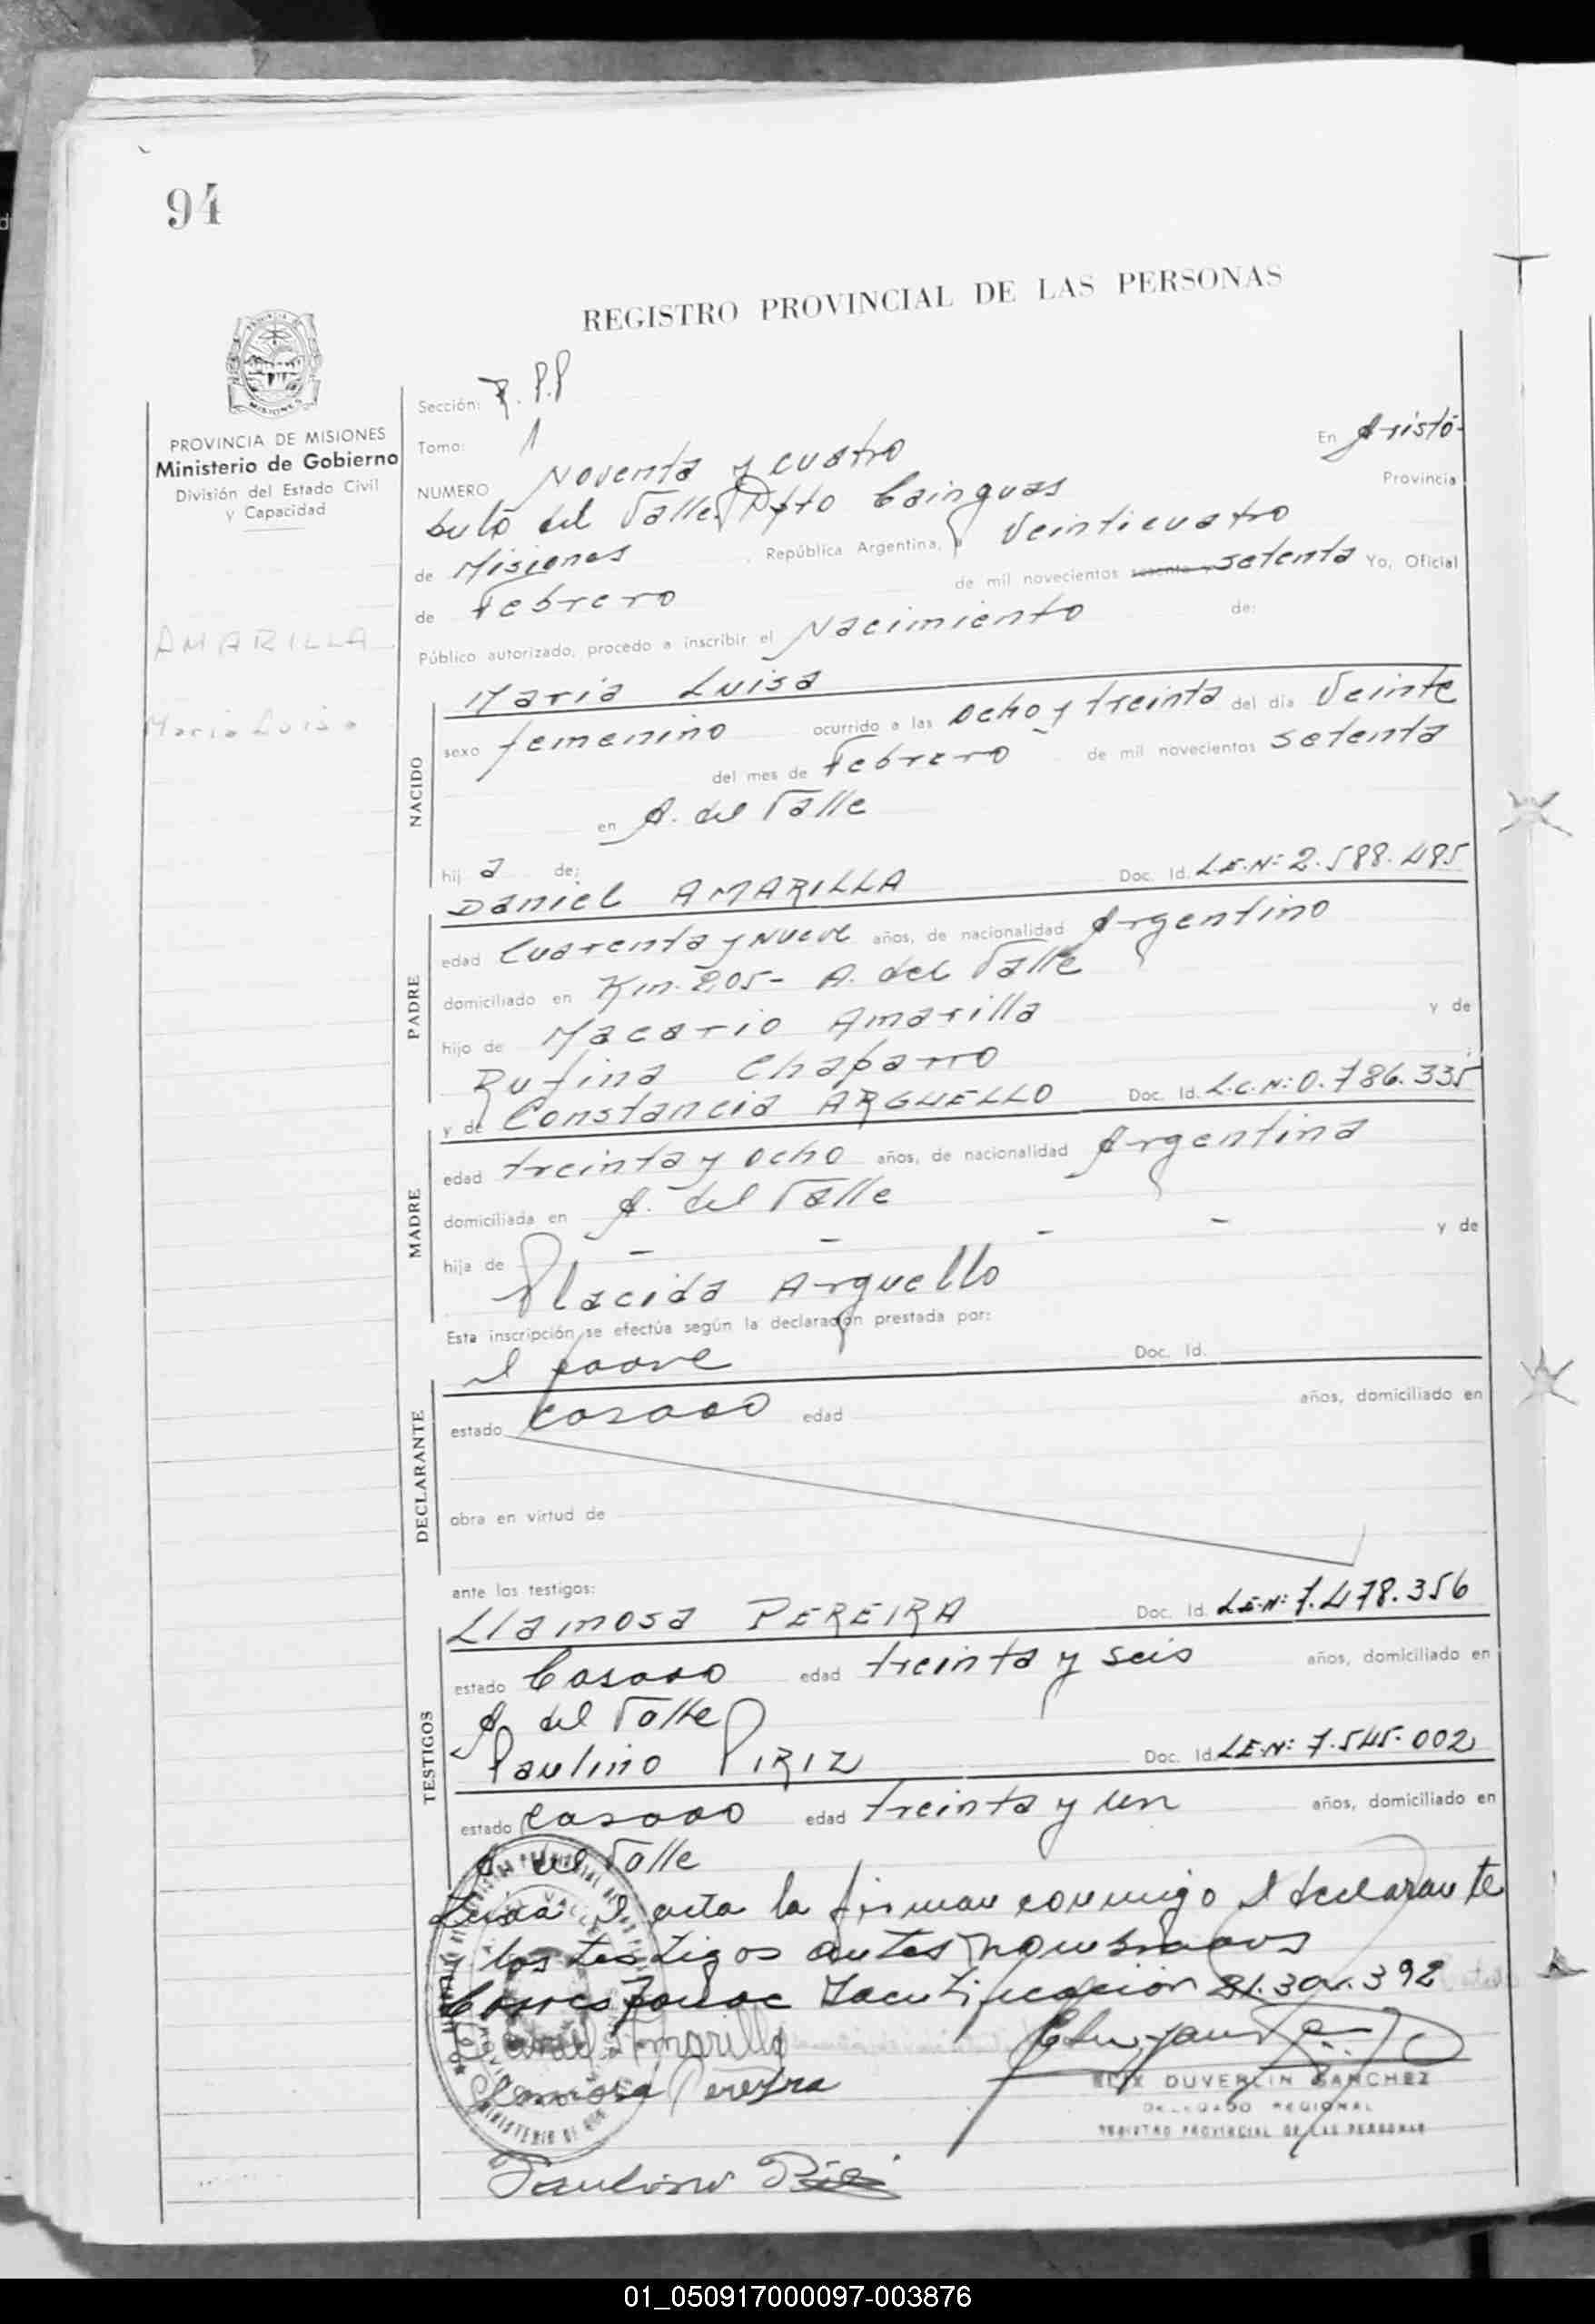 94
REGISTRO PROVINCIAL DE LAS PERSONAS
MISIONES
PROVINCIA DE MISIONES
Ministerio de Gobierno
División del Estado Civil
y Capacidad
AMARILLA
Maria Luisa
Sección: R. P.P
Tomo: 1
NUMERO Noventa y cuatro En Aristó-
bulo del Valle, Dpto Cainguas Provincia
de Misiones, República Argentina, a Veinticuatro
de Febrero de mil novecientos setenta Yo, Oficial
Público autorizado, procedo a inscribir el Nacimiento de:
NACIDO
Maria Luisa
sexo femenino ocurrido a las ocho y treinta del día Veinte
del mes de Febrero de mil novecientos setenta
en A. del Valle
hij a de:
PADRE
Daniel AMARILLA Doc. Id. L.E.Nº 2.588.485
edad Cuarenta y nueve años, de nacionalidad Argentino
domiciliado en Km. 205- A. del Valle
hijo de Macario Amarilla y de
Rufina Chaparro
MADRE
y de Constancia ARGUELLO Doc. Id. L.C.Nº: 0.786.335
edad treinta y ocho años, de nacionalidad Argentina
domiciliada en A. del Valle
hija de - - - - y de
Placida Arguello
Esta inscripción se efectúa según la declaración prestada por:
DECLARANTE
el padre Doc. Id.
estado casado edad años, domiciliado en
obra en virtud de
ante los testigos:
TESTIGOS
Llamosa PEREIRA Doc. Id. L.E.Nº: 7.478.356
estado Casado edad treinta y seis años, domiciliado en
A. del Valle
Paulino PIRIZ Doc. Id. L.E.Nº: 7.545.002
estado casado edad treinta y un años, domiciliado en
A. del Valle
Leida el acta la firman conmigo el declarante
y los testigos antes nombrados
Corresponde Identificación 21.304.392
Daniel Amarilla
Llamosa Pereyra
DUVERLIN SANCHEZ
DELEGADO REGIONAL
REGISTRO PROVINCIAL DE LAS PERSONAS
Paulino Piriz
01_050917000097-003876